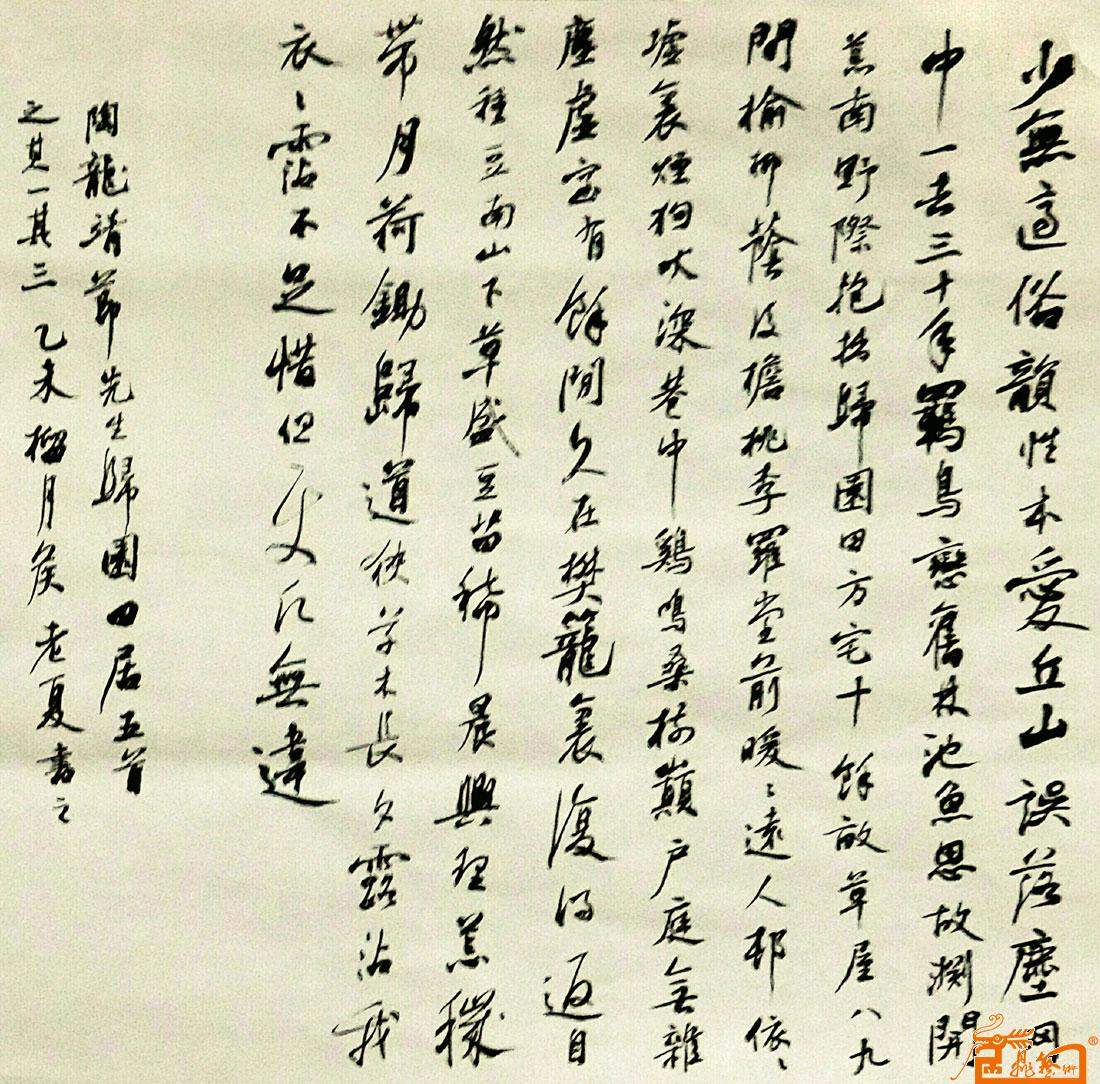 少無適俗韻性本愛丘山誤落塵网
中一去三十年羈鳥戀舊林池魚思故渕開
荒南野際抱拙歸園田方宅十餘畝草屋八九
間榆柳蔭後檐桃李羅堂前暧〻遠人邨依〻
墟裏煙狗吠深巷中鷄鳴桑樹巔户庭無雜
塵虛室有餘閒久在樊籠裏復得返自
然種豆南山下草盛豆苗稀晨興理荒穢
帶月荷鋤歸道狹草木長夕露沾我
衣〻霑不足惜但使願無違
陶龍靖節先生歸園田居五首
之其一其三 乙未榴月侯老夏書之